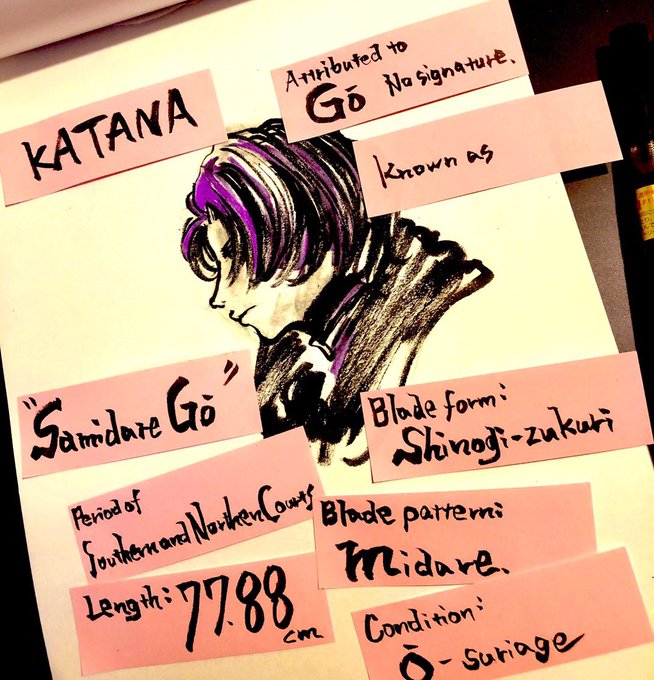 KATANA
Attributed to
Gō No signature.
Known as
"Samidare Gō"
Period of
Southern and Northen Courts
Length: 77.88
cm
Blade form:
Shinogi-zukuri
Blade pattern:
Midare.
Condition:
Ō-suriage